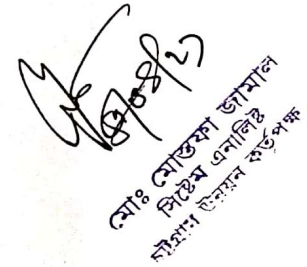 মোঃ মোস্তফা জামাল
সিষ্টেম এনালিষ্ট
চট্টগ্রাম উন্নয়ন কর্তৃপক্ষ